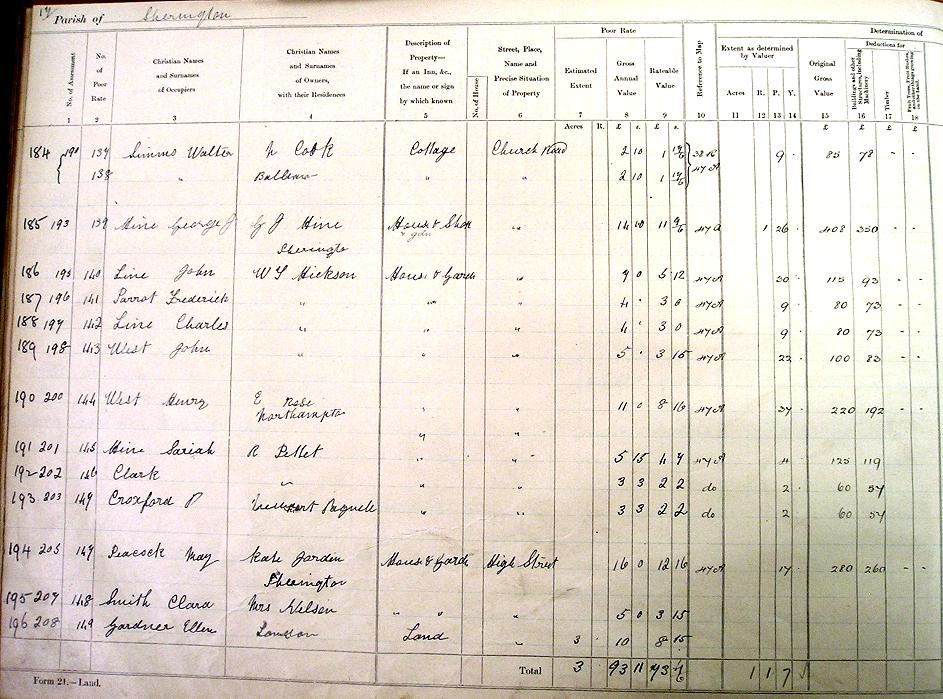 17 Parish of Sherington
Poor Rate
Determination of
No. of Assessment
No. of Poor Rate
Christian Names and Surnames of Occupiers
Christian Names and Surnames of Owners, with their Residences
Description of Property— If an Inn, &c., the name or sign by which known
No. of House
Street, Place, Name and Precise Situation of Property
Estimated Extent
Gross Annual Value
Rateable Value
Reference to Map
Extent as determined by Valuer
Acres R. P. Y.
Original Gross Value
Deductions for
Buildings and other Structures, including Machinery
Timber
Fruit Trees, Fruit Bushes, and other things growing on the Land.
1 2 3 4 5 6 7 8 9 10 11 12 13 14 15 16 17 18
Acres R. £ s. £ s. £ £ £ £
184 137 Simms Walter Cook Cottage Church Road 2 10 1 9 85 78
138 " 2 10 1
185 193 139 Hine George J G J Hine House & Shop " 14 10 11 1 26 408 350 - -
Sherington & gdn
186 195 140 Line John W Y Hickson House & Garde " 9 0 5 12 47A 30 115 93 - -
187 196 141 Parrot Frederick " " " 4 · 3 0 47A 9 80 73 - -
188 197 142 Line Charles " " " 4 · 3 0 47A 9 80 73 - -
189 198 143 West John " " " 5 · 3 15 47A 22 100 83 - -
190 200 144 West Henry E Rose " " 11 0 8 16 47A 37 220 192 - -
Northampton
" "
191 201 145 Hine Sariah R Pettet " " 5 15 4 7 47A 4 125 119
192 202 146 Clark " " " 3 3 2 2 do 2 60 57
193 203 147 Croxford P Newport Pagnell " " 3 3 2 2 do 2 60 57
194 205 147 Peacock May Kate Jardin House & Garde High Street 16 0 12 16 47A 17 280 260 - -
Sherington
195 207 148 Smith Clara Mrs Nelson " " " 5 0 3 15
196 208 149 Gardner Ellen London Land " 3 10 8 15
Total 3 93 11 73 1 1 7
Form 21.—Land.